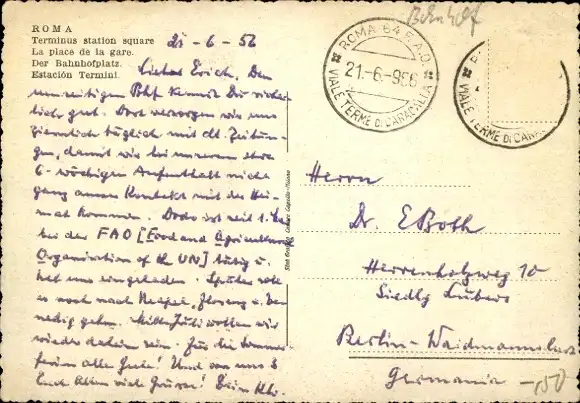 ROMA
Terminus station square
La place de la gare.
Der Bahnhofplatz.
Estación Termini.
21-6-56
Lieber Erich, Den
umseitigen Bhf kennst Du sicher-
lich gut. Dort versorgen wir uns
ziemlich täglich mit dt. Zeitun-
gen, damit wir bei unserem etwa
6-wöchigen Aufenthalt nicht
ganz ausser Kontakt mit der Hei-
mat kommen. ist seit 1.
bei der FAO [Food and Agriculture
Organisation of the UN] tätig u.
hat uns eingeladen. Später soll
es noch nach Neapel, Florenz u. Ve-
nedig gehn. Mitte Juli wollen wir
wieder daheim sein. Für die Sommer-
ferien alles Gute! Und von uns 3
Euch allen viele Grüsse! Dein
Bahnhof
ROMA 64 F.A.O.
21-6-956
VIALE TERME DI CARACALLA
R
VIALE TERME DI CARA
Herrn
Dr. E Both
Herrenholzweg 10
Siedlg Lübars
Berlin-Waidmannslust
Germania
-,50